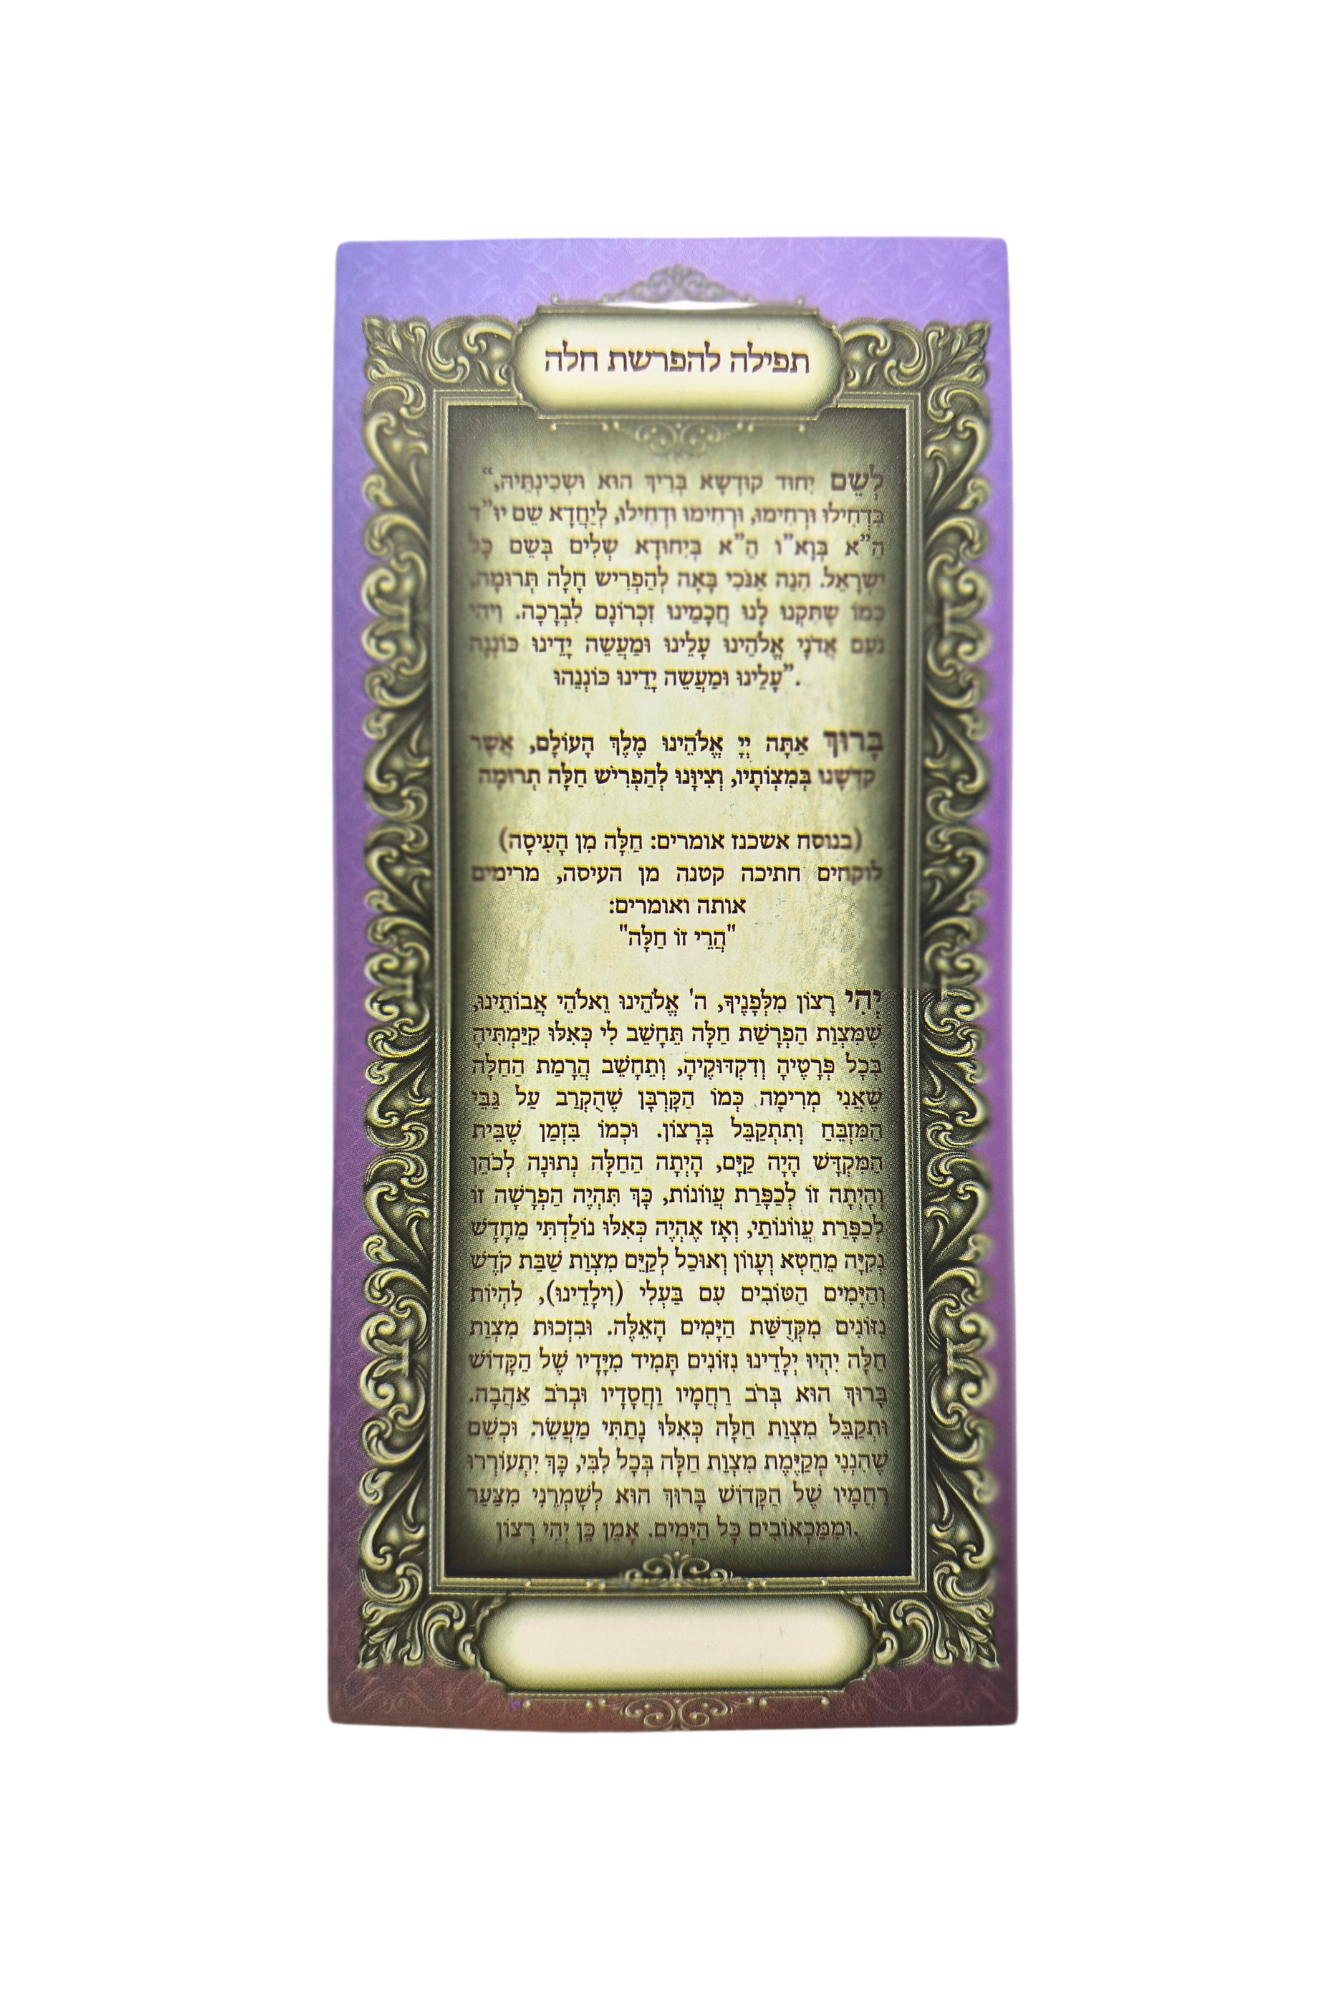 תפילה להפרשת חלה
לְשֵׁם יִחוּד קוּדְשָׁא בְּרִיךְ הוּא וּשְׁכִינְתֵּיהּ,"
בִּדְחִילוּ וּרְחִימוּ, וּרְחִימוּ וּדְחִילוּ, לְיַחֲדָא שֵׁם יוּ"ד
הֵ"א בְּוָא"ו הֵ"א בְּיִחוּדָא שְׁלִים בְּשֵׁם כָּל
יִשְׂרָאֵל. הִנֵּה אָנֹכִי בָּאָה לְהַפְרִישׁ חַלָּה תְּרוּמָה,
כְּמוֹ שֶׁתִּקְּנוּ לָנוּ חֲכָמֵינוּ זִכְרוֹנָם לִבְרָכָה. וִיהִי
נֹעַם אֲדֹנָי אֱלֹהֵינוּ עָלֵינוּ וּמַעֲשֵׂה יָדֵינוּ כּוֹנְנָה
עָלֵינוּ וּמַעֲשֵׂה יָדֵינוּ כּוֹנְנֵהוּ".
בָּרוּךְ אַתָּה יְיָ אֱלֹהֵינוּ מֶלֶךְ הָעוֹלָם, אֲשֶׁר
קִדְּשָׁנוּ בְּמִצְוֹתָיו, וְצִיוָּנוּ לְהַפְרִישׁ חַלָּה תְרוּמָה
(בנוסח אשכנז אומרים: חַלָּה מִן הָעִיסָה)
לוקחים חתיכה קטנה מן העיסה, מרימים
אותה ואומרים:
"הֲרֵי זוֹ חַלָּה"
יְהִי רָצוֹן מִלְּפָנֶיךָ, ה' אֱלֹהֵינוּ וֵאלֹהֵי אֲבוֹתֵינוּ,
שֶׁמִּצְוַת הַפְרָשַׁת חַלָּה תֵּחָשֵׁב לִי כְּאִלּוּ קִיַּמְתִּיהָ
בְּכָל פְּרָטֶיהָ וְדִקְדּוּקֶיהָ, וְתֵחָשֵׁב הֲרָמַת הַחַלָּה
שֶׁאֲנִי מְרִימָה כְּמוֹ הַקָּרְבָּן שֶׁהֻקְרַב עַל גַּבֵּי
הַמִּזְבֵּחַ וְתִתְקַבֵּל בְּרָצוֹן. וּכְמוֹ בִּזְמַן שֶׁבֵּית
הַמִּקְדָּשׁ הָיָה קַיָּם, הָיְתָה הַחַלָּה נְתוּנָה לְכֹהֵן
וְהָיְתָה זוֹ לְכַפָּרַת עֲווֹנוֹת, כָּךְ תִּהְיֶה הַפְרָשָׁה זוֹ
לְכַפָּרַת עֲווֹנוֹתַי, וְאָז אֶהְיֶה כְּאִלּוּ נוֹלַדְתִּי מֵחָדָשׁ
נְקִיָּה מֵחֵטְא וְעָווֹן וְאוּכַל לְקַיֵּם מִצְוַת שַׁבַּת קֹדֶשׁ
וְהַיָּמִים הַטּוֹבִים עִם בַּעְלִי (וִילָדֵינוּ), לִהְיוֹת
נִזּוֹנִים מִקְּדֻשַּׁת הַיָּמִים הָאֵלֶּה. וּבִזְכוּת מִצְוַת
חַלָּה יִהְיוּ יְלָדֵינוּ נִזּוֹנִים תָּמִיד מִיָּדָיו שֶׁל הַקָּדוֹשׁ
בָּרוּךְ הוּא בְּרֹב רַחֲמָיו וַחֲסָדָיו וּבְרֹב אַהֲבָה.
וּתְקַבֵּל מִצְוַת חַלָּה כְּאִלּוּ נָתַתִּי מַעֲשֵׂר. וּכְשֵׁם
שֶׁהִנְנִי מְקַיֶּמֶת מִצְוַת חַלָּה בְּכָל לִבִּי, כָּךְ יִתְעוֹרְרוּ
רַחֲמָיו שֶׁל הַקָּדוֹשׁ בָּרוּךְ הוּא לְשָׁמְרֵנִי מִצַּעַר
וּמִמַּכְאוֹבִים כָּל הַיָּמִים. אָמֵן כֵּן יְהִי רָצוֹן.